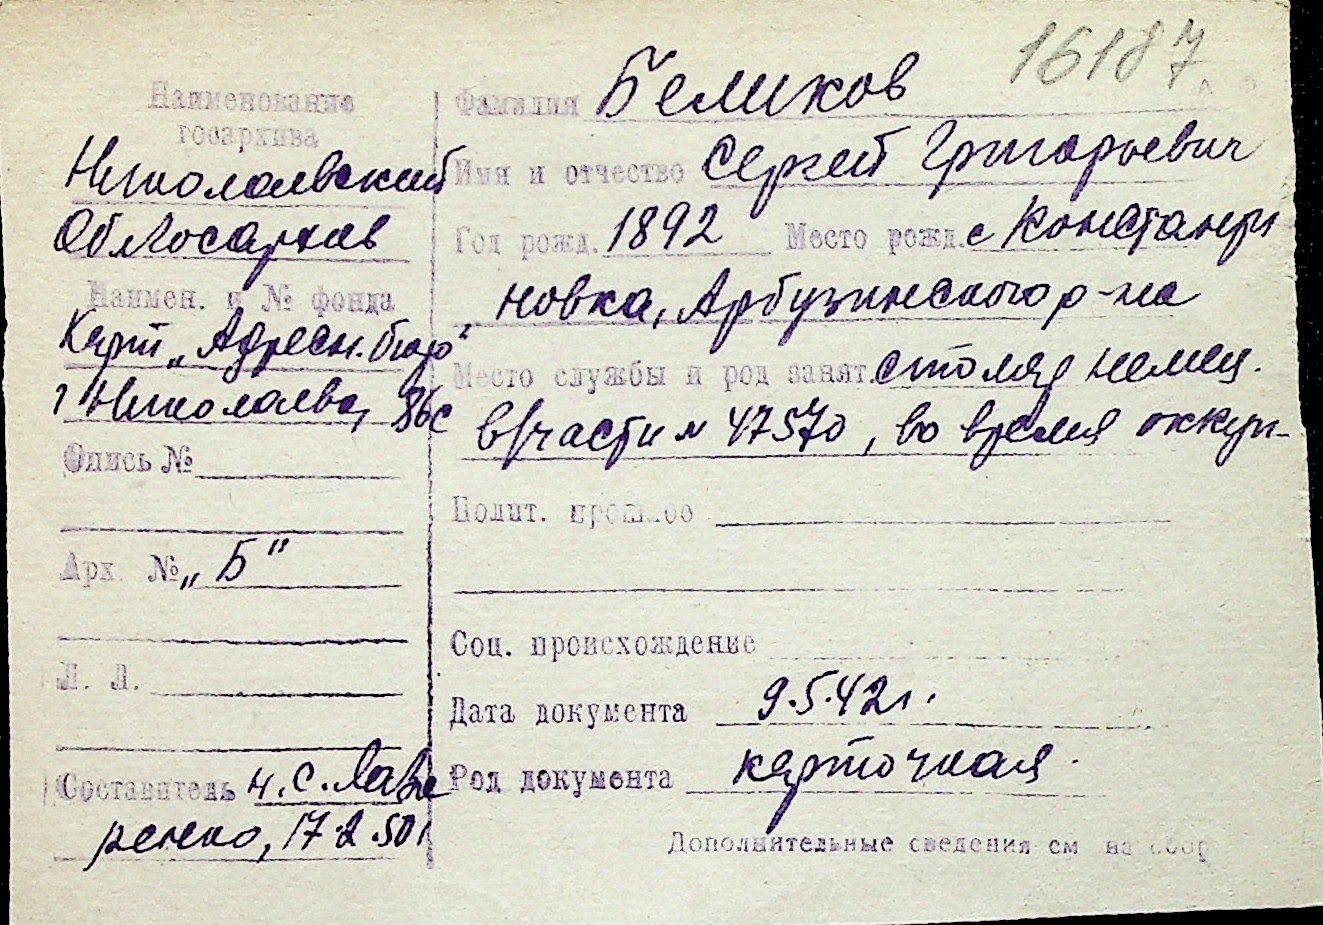 16187
Наименование
госархива
Николаевский
Облгосархив
Наимен. и № фонда
Карт „Адресн. бюро"
г Николаева, 86с
Опись №
Арх. № „Б"
Л. Л.
Составитель Н. С. Лавре
ренко, 17.2.50г
Фамилия Беликов
Имя и отчество Сергей Григорьевич
Год рожд. 1892 Место рожд. с Константи
новка, Арбузинского р-на
Место службы и род занят. столяр немец.
в/части № 47570, во время оккуп-
Полит. прошлое
Соц. происхождение
Дата документа 9.5.42г.
Род документа карточная
Дополнительные сведения см на обор